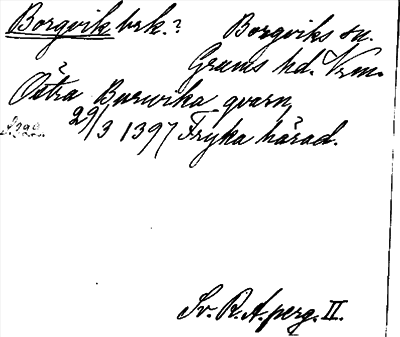 Borgvik brk.? Borgviks sn.
Grums hd. Vrm.
Östra Burwika qvarn,
29/3 1397 Fryka härad.
Sv. R. A. perg. II.